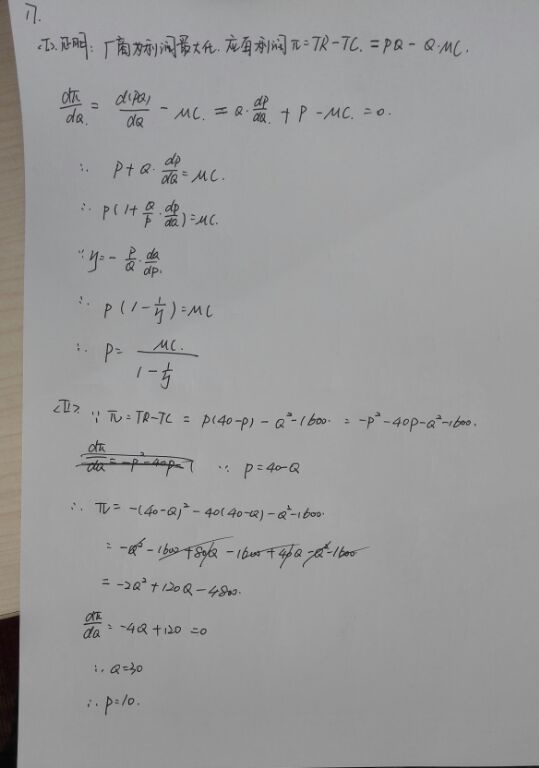 17.
<I>证明: 厂商为利润最大化. 应有利润π=TR-TC. = PQ - Q·MC.
dπ/dQ. = d(PQ)/dQ - MC. = Q·dP/dQ. + P - MC. = 0.
∴ P + Q·dP/dQ = MC.
∴ P(1+Q/P·dP/dQ) = MC.
∵ η = - P/Q·dQ/dP.
∴ P(1-1/η) = MC
∴ P = MC./(1-1/η)
<II> ∵ π = TR-TC = P(40-P) - Q²-1600. = -P²-40P-Q²-1600.
dπ/dQ = -P²-40P= ∵ P=40-Q
∴ π = -(40-Q)²-40(40-Q)-Q²-1600.
= -Q²-1600+80Q-1600+40Q-Q²-1600
= -2Q²+120Q-4800.
dπ/dQ = -4Q+120 = 0
∴ Q=30
∴ P=10.